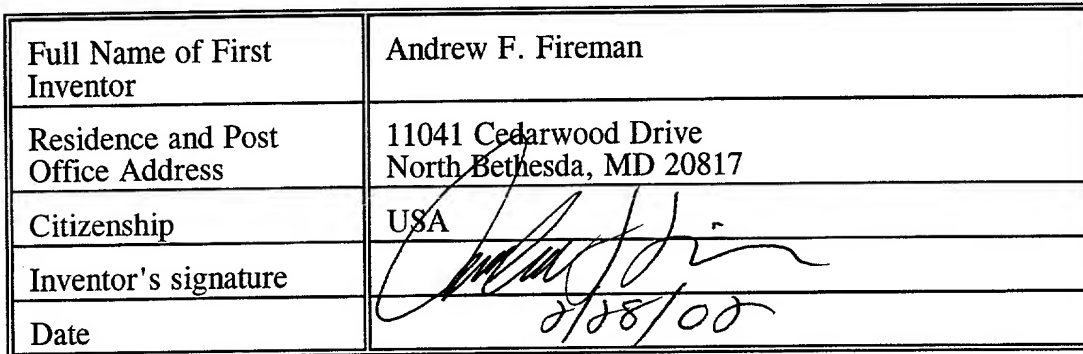 Full Name of First Inventor
Andrew F. Fireman
Residence and Post Office Address
11041 Cedarwood Drive
North Bethesda, MD 20817
Citizenship
USA
Inventor's signature
Date
2/28/02